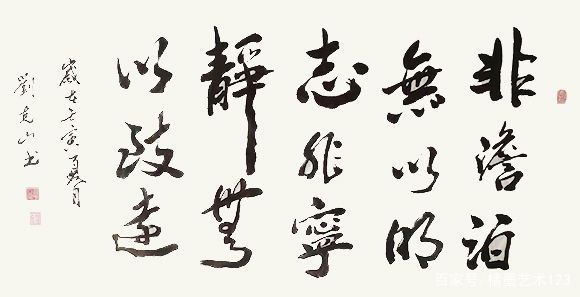 非澹泊
無以明
志非寧
靜無
以致遠
歲在壬寅月
劉山書
百家号/艺术123